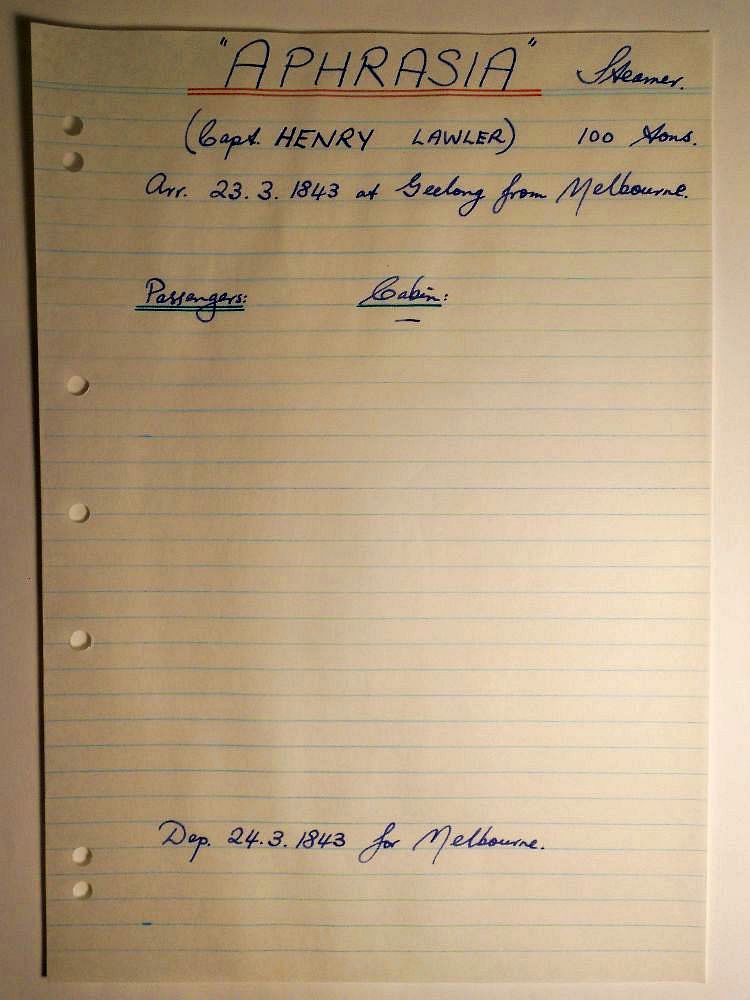 "APHRASIA" Steamer.
(Capt. HENRY LAWLER) 100 tons.
Arr. 23.3.1843 at Geelong from Melbourne.
Passengers: Cabin:
—
Dep. 24.3.1843 for Melbourne.